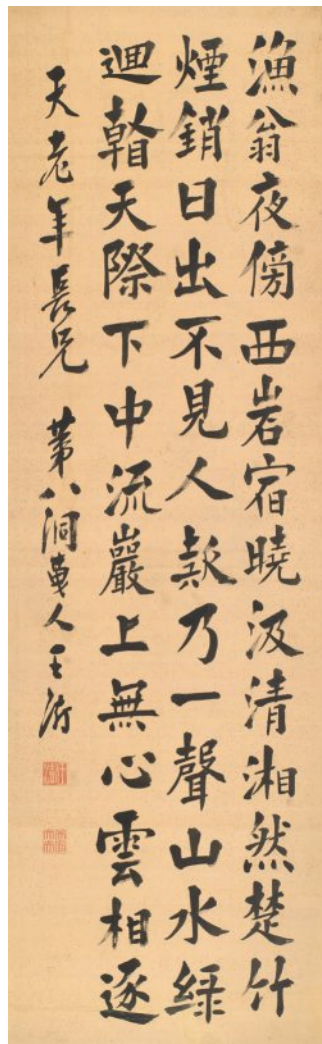 漁翁夜傍西岩宿曉汲清湘然楚竹
煙銷日出不見人欸乃一聲山水綠
迴看天際下中流巖上無心雲相逐
天老年長兄 第八洞 人王